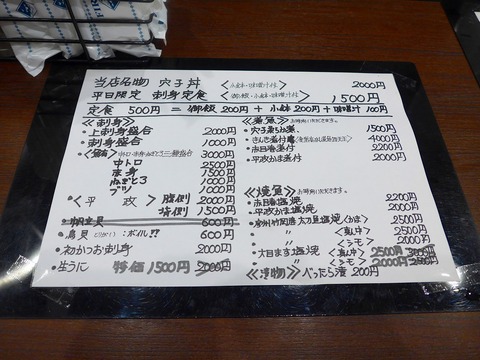 当店名物 穴子丼 <小鉢・味噌汁付> 2000円
平日限定 刺身定食 <御飯・小鉢・味噌汁付> 1500円
定食 500円 = 御飯 200円 + 小鉢 200円 + 味噌汁 100円
≪刺身≫
・上刺身盛合 2000円
・刺身盛合 1000円
・<鮪> 3000円
中トロ 2500円
赤身 1500円
ねぎとろ 1000円
ブツ 1000円
・<平政> 腹側 2000円
背側 1500円
・帆立貝 600円
・鳥貝 ボイル!! 600円
・初かつお刺身 2000円
・生うに 特価1500円 2000円
≪煮魚≫ お時間いただきます。
・穴子柔らか煮 1500円
・きんき煮付 4000円
・赤目春煮付 2200円
・平政かま煮付 2000円
≪焼魚≫ お時間いただきます。
・赤目春塩焼 2200円
・平政かま塩焼 2000円
塩焼<かま> 2500円
〃 <真中> 2500円
〃 <シモ> 2000円
・大目ます塩焼<真中> 2500円 3000円
〃 <シモ> 2000円 2500円
≪漬物≫ べったら漬 200円